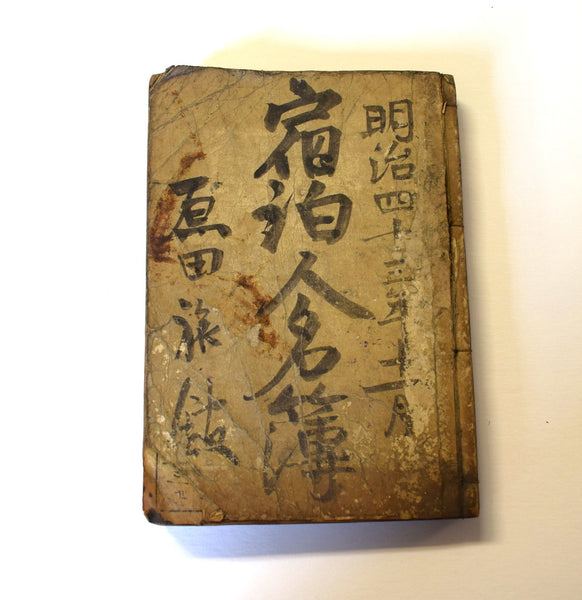 明治四十三年十一月
宿泊人名簿
原田旅舘